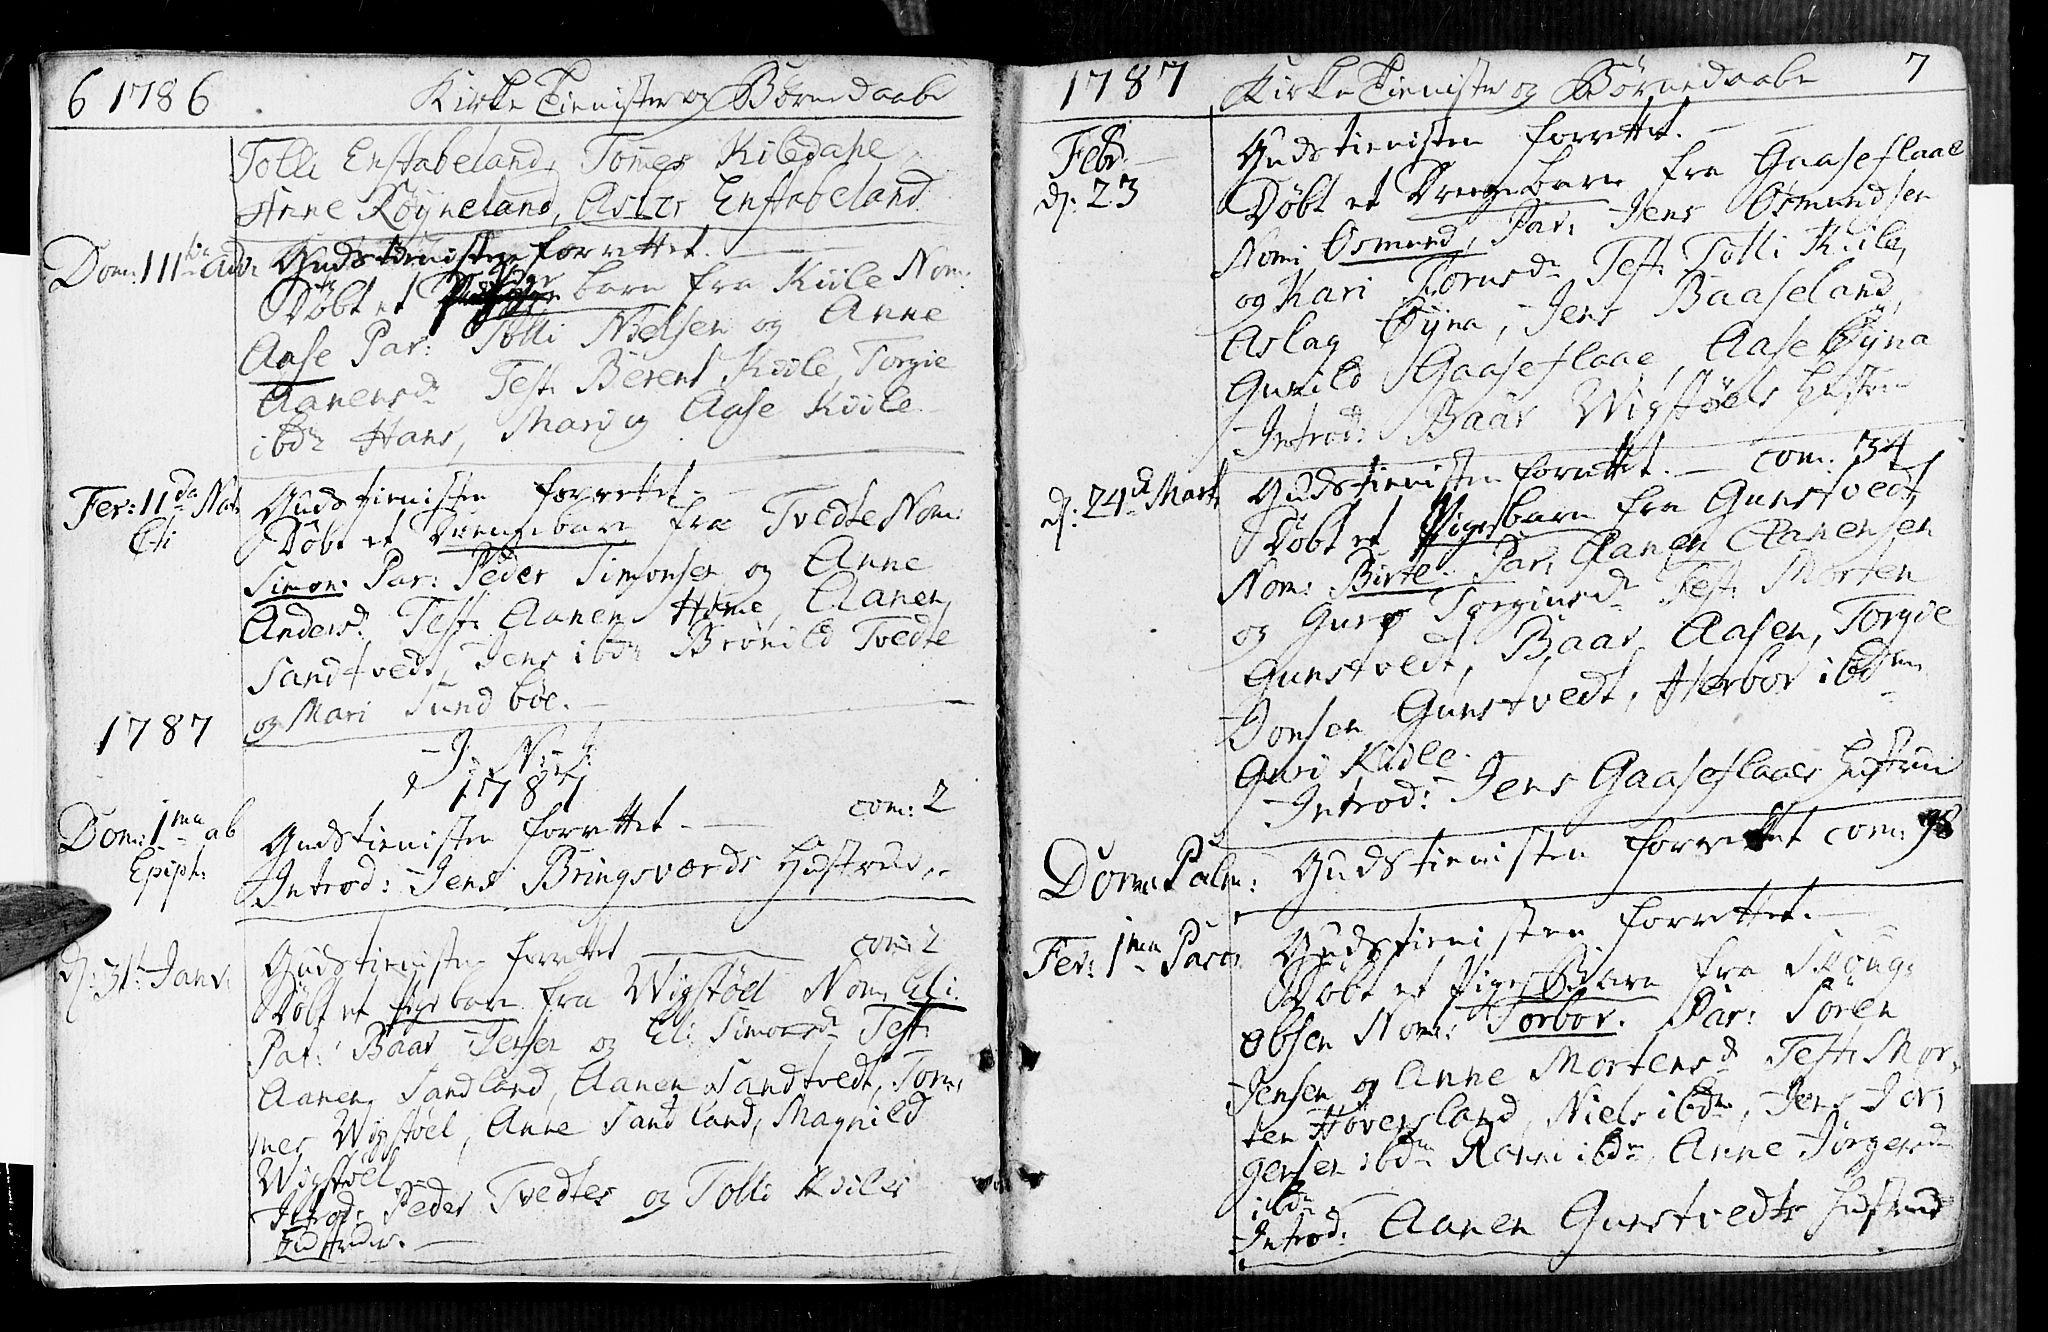 6 1786 Kirke Tienister og Børnedaabe
Tolli Enstabeland, Tomes Kiledahl,
Anne Røyneland, Aslev Enstabeland
Dom: 111tia Adv: Gudstienisten forrettet. —
Døbt et Pigebarn fra Kiile Nom:
Aase Par: Tolli Nielsen og Anne
Aanensd. Test: Berent Kiile, Torgie
ibdm Hans, Mari og Aase Kiile
Fer: 11da Nat: Gudstienisten forrettet —
Cti Døbt et Drengebarn fra Tvedte Nom:
Simon: Par: Peder Simonsen og Anne
Andersd. Test: Aanen Home, Aanen
Sandtvedt, Jens ibdm Brønild Tvedte
og Mari Sundbøe. —
1787
J: N: J:
1787
Dom: 1ma ab Gudstienisten forrettet. — com: 2
Epiph: Introd: Jens Bringsværds Hustrue. —
d: 31t Janv: Gudstienisten forrettet — com: 2
Døbt et Pigebarn fra Wigstøel Nom: Eli.
Par: Baar Jensen og Eli Simonsd. Test:
Aanen Sandland, Aanen Sandtvedt, Tom:
mes Wigstøel, Anne Sandland, Magnild
Wigstøel
Introd: Peder Tvedtes og Tolli Kiiles
Hustruer. —
1787 Kirke Tienister og Børnedaabe 7
Febr. Gudstienisten forrettet. —
d: 23 Døbt et Drengebarn fra Gaaseflaae
Nom: Osmund, Par: Jens Osmundsen
og Kari Tornsd. Test: Tolli Kiile,
Aslag Øyna, Jens Baaseland,
Gunild Gaaseflaae, Aase Øyna
Introd: Baar Wigstøels Hustrue
d: 24d Marti Gudstienisten forrettet. — com: 34
Døbt et Pigebarn fra Gunstvedt
Nom: Birte. Par: Aanen Aanensen
og Guro Torginsd. Test: Morten
Gunstvedt, Baar Aasen, Torgie
Jonsen Gunstvedt, Herbor ibdm
Guri Kiile.
Introd: Jens Gaaseflaaes Hustrue
Dom: Palm: Gudstienisten forrettet com: 98
Fer: 1ma Pasc: Gudstienisten forrettet. —
Døbt et Pige Barn fra
Nom: Torbor. Par: Søren
Jensen og Anne Mortensd. Test: Mor:
ten Høversland, Niels ibdm, Jens Jør:
gensen ibdm ibdm, Anne Jørgensd.
ibdm. —
Introd: Aanen Gunstvedts Hustrue